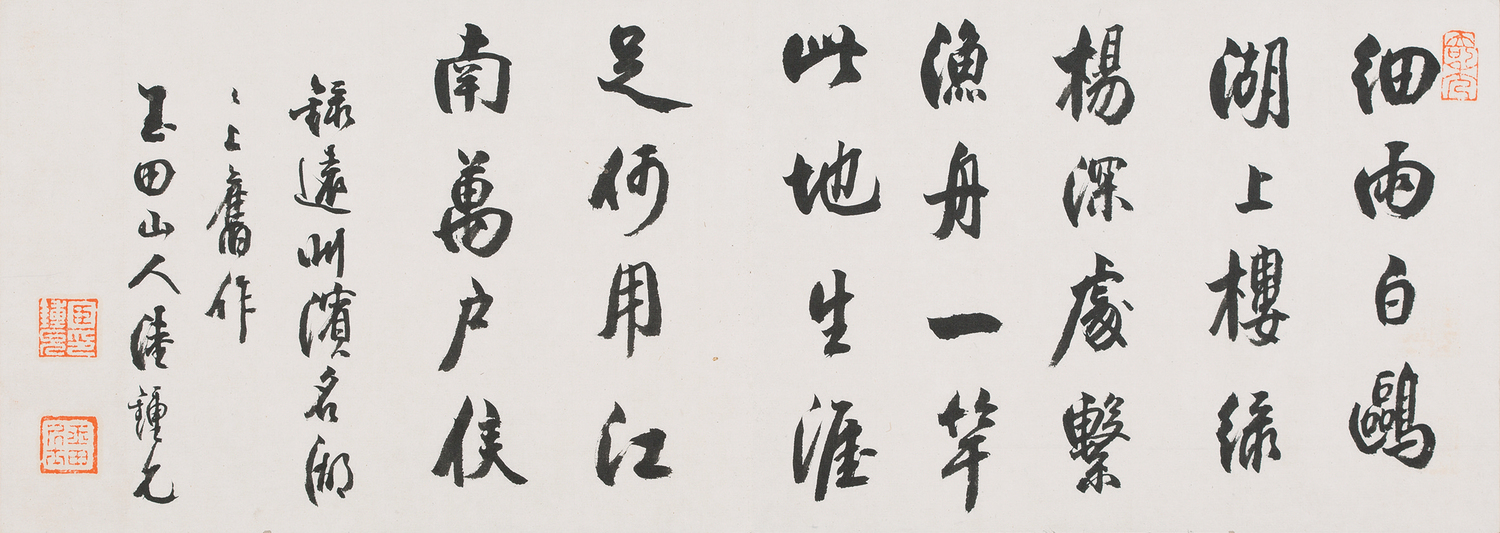 細雨白鷗
湖上樓緑
楊深處繫
漁舟一竿
此地生涯
足何用江
南萬戶侯
録遠州濱名湖
〻上舊作
玉田山人 鍾